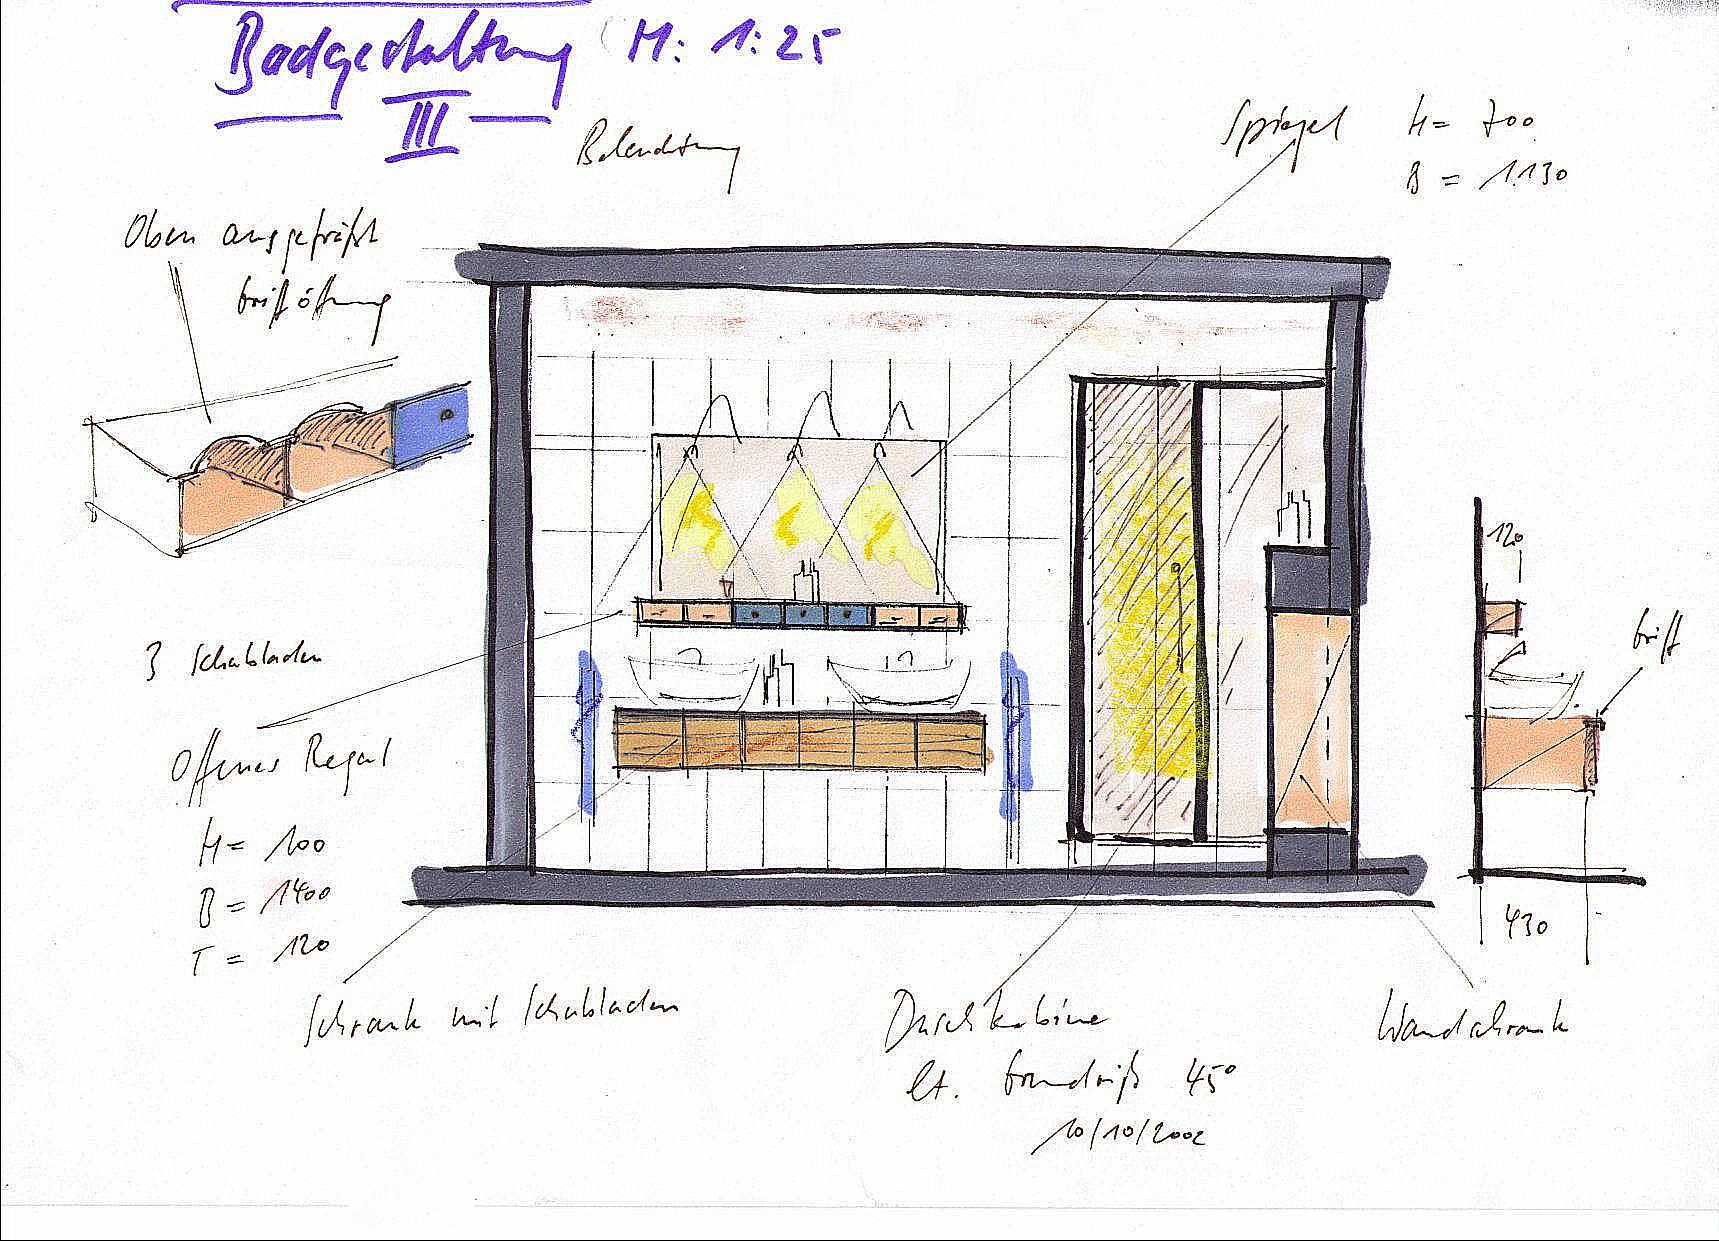 Badgestaltung M: 1:25
III
Beleuchtung
Spiegel H= 700
B = 1.130
Oben ausgefräßt
Grifföffnung
120
Griff
3 Schubladen
Offenes Regal
H= 100
B = 1400
T = 120
430
Schrank mit Schubladen
Duschkabine
lt. Grundriß 45°
10/10/2002
Wandschrank